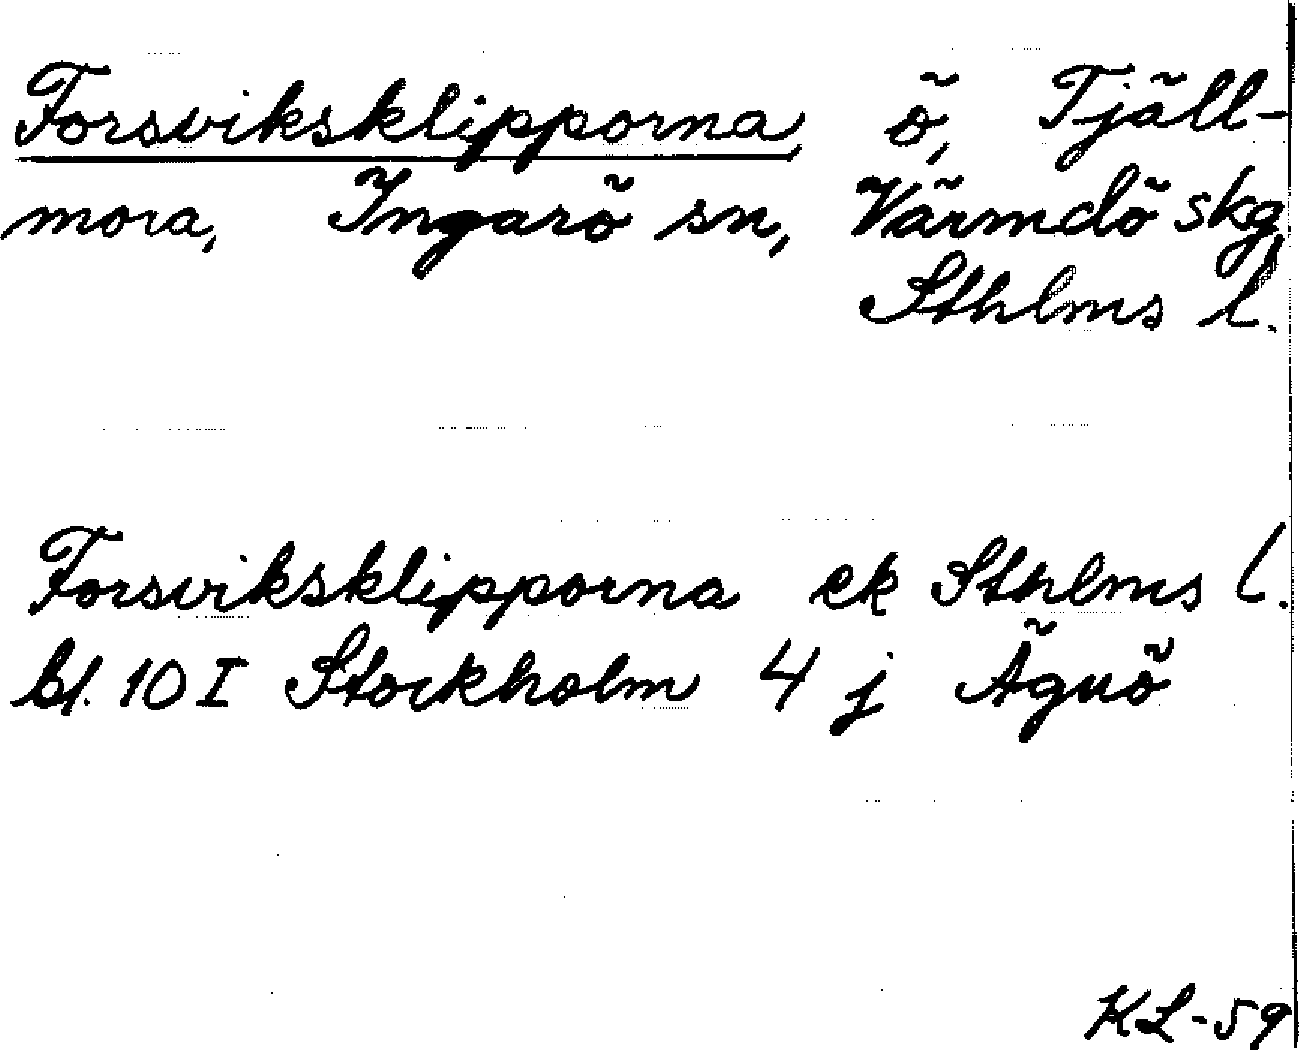 Forsviksklipporna, ö, Tjäll-
mora, Ingarö sn, Värmdö skg
Sthlms l.
Forsviksklipporna ek Sthlms l.
bl. 10 I Stockholm 4 j Ägnö
KL-59